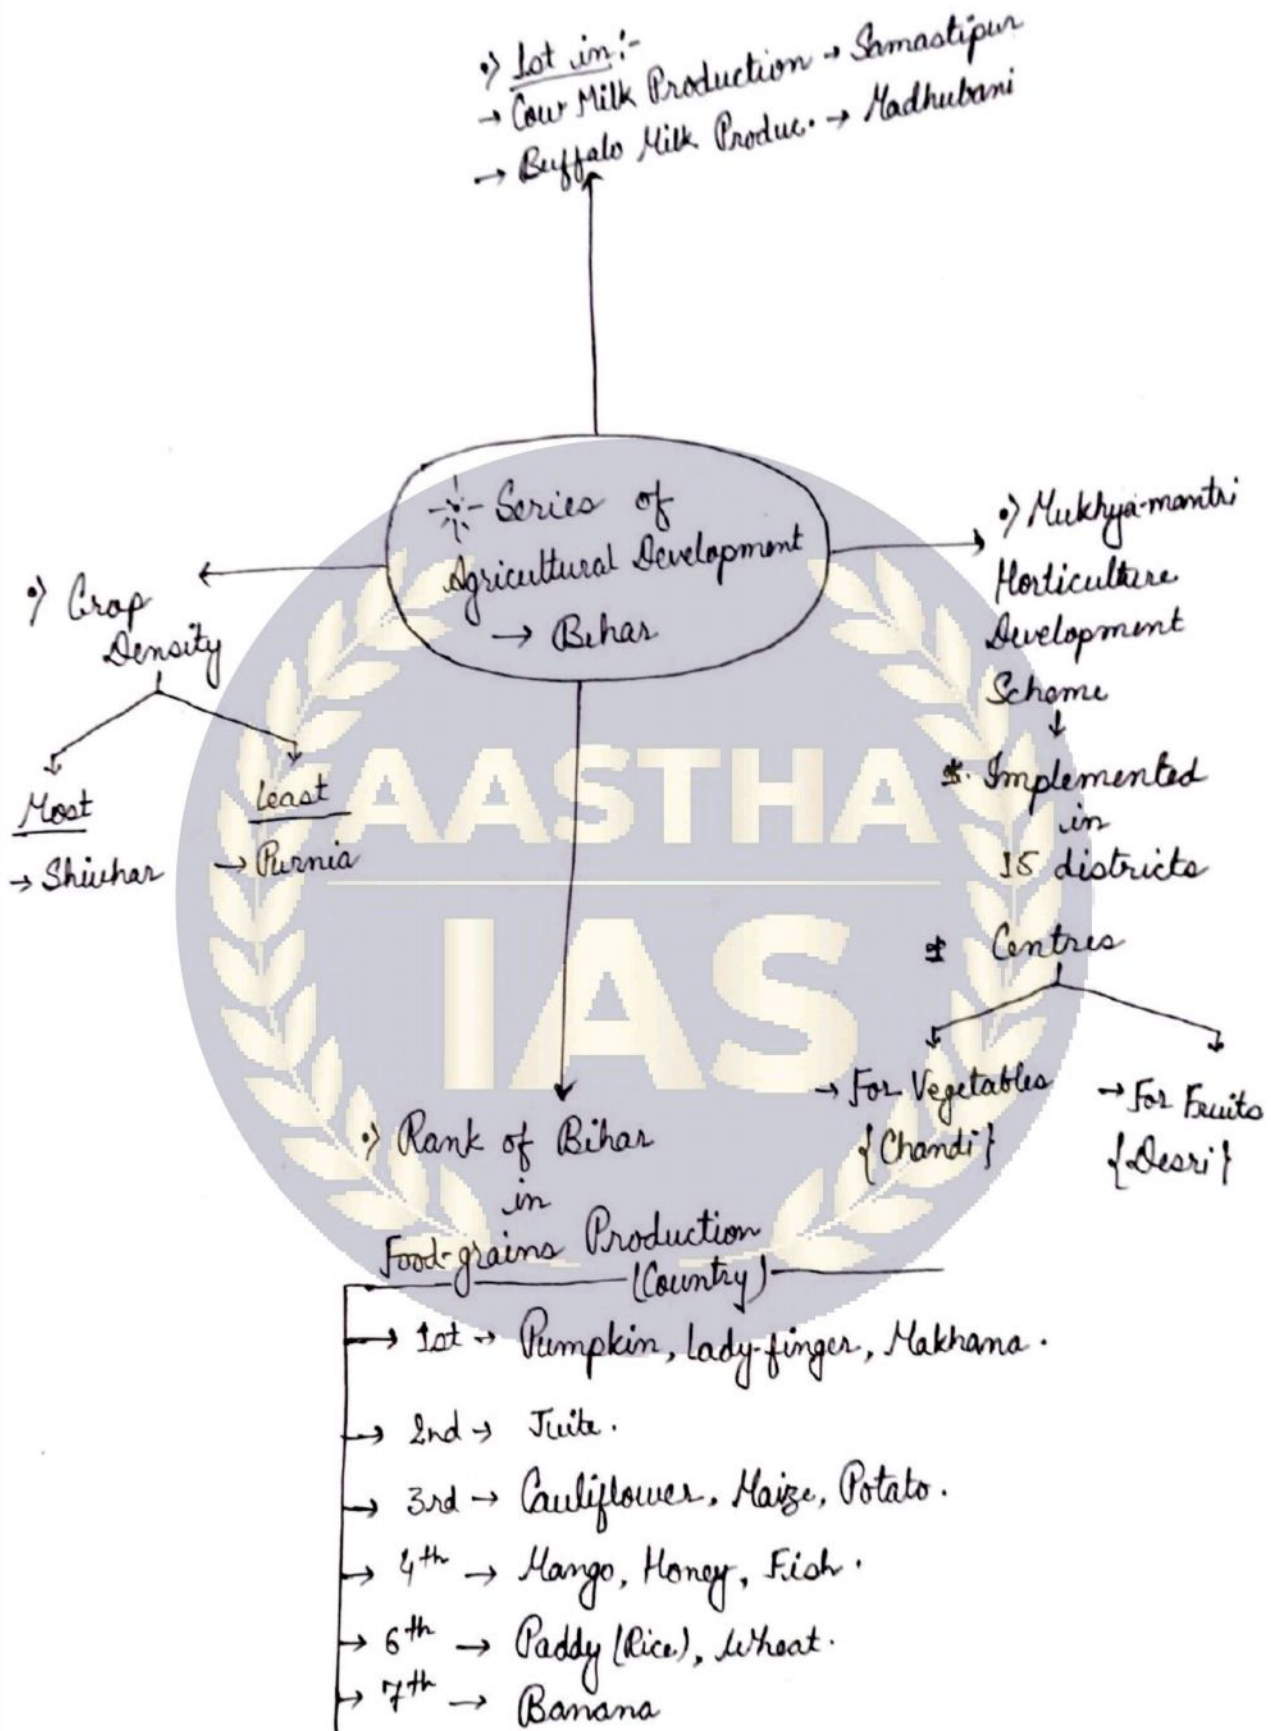 •) 1st in:-
→ Cow Milk Production → Samastipur
→ Buffalo Milk Produc. → Madhubani
Series of
Agricultural Development
→ Bihar
•) Crop
Density
Most
→ Shivhar
Least
→ Purnia
•) Mukhya-mantri
Horticulture
Development
Scheme
* Implemented
in
15 districts
* Centres
→ For Vegetables
{Chandi}
→ For Fruits
{Desri}
AASTHA
IAS
•) Rank of Bihar
in
Food-grains Production
(Country)
→ 1st → Pumpkin, Lady-finger, Makhana.
→ 2nd → Jute.
→ 3rd → Cauliflower, Maize, Potato.
→ 4th → Mango, Honey, Fish.
→ 6th → Paddy (Rice), Wheat.
→ 7th → Banana